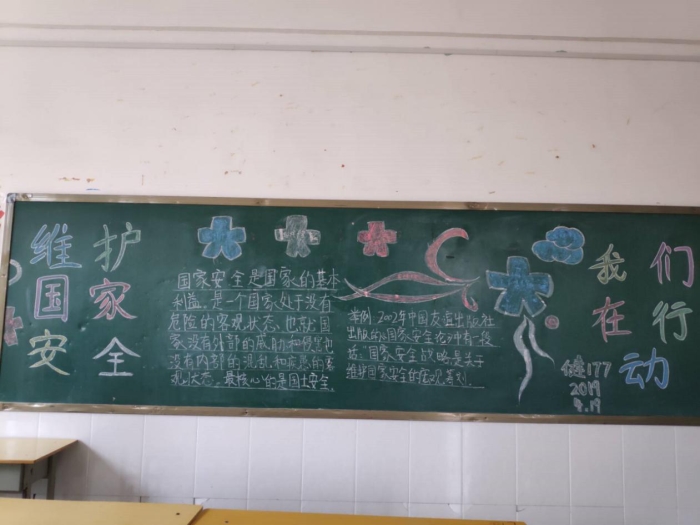 维护
国家
安全
国家安全是国家的基本
利益,是一个国家处于没有
危险的客观状态,也就国
家没有外部的威胁和侵害也
没有内部的混乱和疾患的客
观状态。最核心的是国土安全
举例,2002年中国友谊出版社
出版的国家安全论中有一段
话:国家安全战略是关于
维护国家安全的宏观筹划.
我们
在行
动
177
2019
9.19